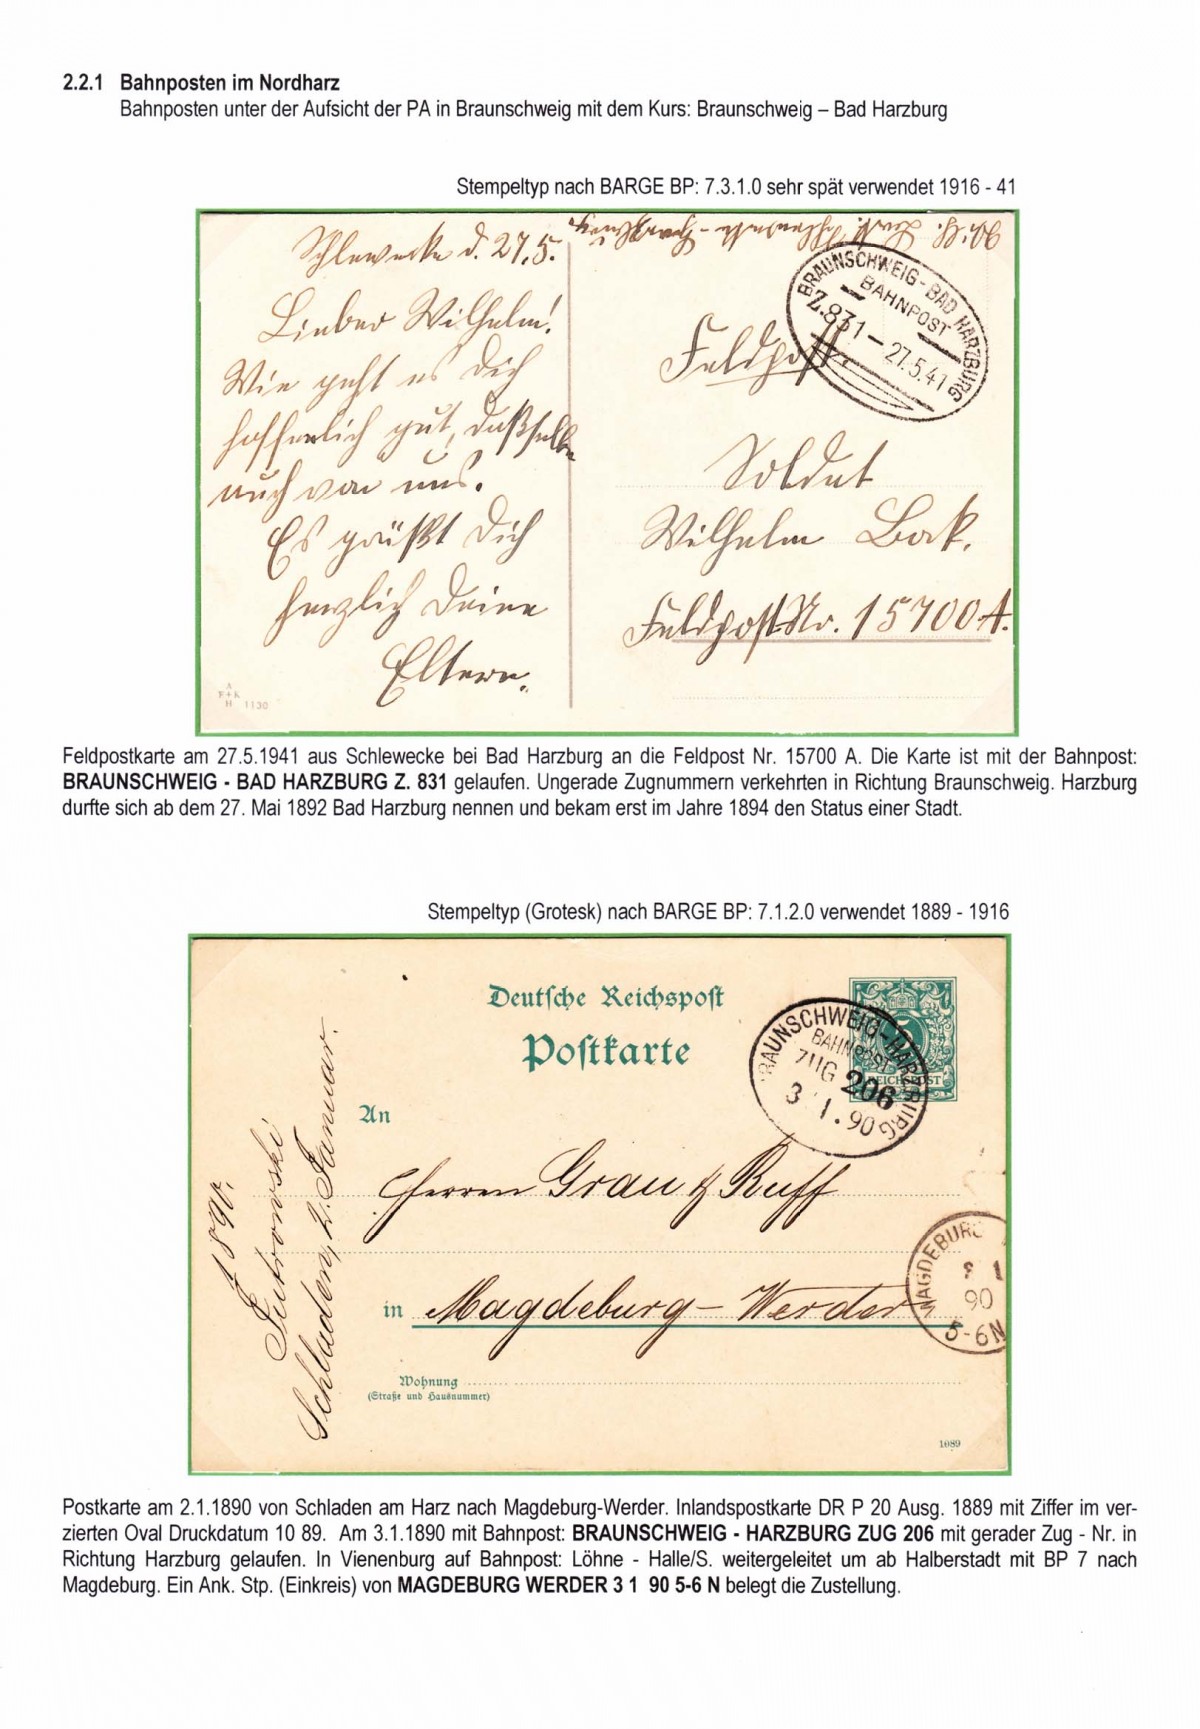 2.2.1 Bahnposten im Nordharz
Bahnposten unter der Aufsicht der PA in Braunschweig mit dem Kurs: Braunschweig – Bad Harzburg
Stempeltyp nach BARGE BP: 7.3.1.0 sehr spät verwendet 1916 - 41
Schlewecke d. 27.5.
Lieber Wilhelm!
Wie geht es Dich
hoffenlich gut, daßselbe
auch von uns.
Es grüßt Dich
herzlich Deine
Eltern.
A
F+K
H 1130
BRAUNSCHWEIG - BAD HARZBURG
BAHNPOST
Z.831 - 27.5.41
Feldpost.
Soldat
Wilhelm Bock.
FeldpostNr. 15700A.
Feldpostkarte am 27.5.1941 aus Schlewecke bei Bad Harzburg an die Feldpost Nr. 15700 A. Die Karte ist mit der Bahnpost:
BRAUNSCHWEIG - BAD HARZBURG Z. 831 gelaufen. Ungerade Zugnummern verkehrten in Richtung Braunschweig. Harzburg
durfte sich ab dem 27. Mai 1892 Bad Harzburg nennen und bekam erst im Jahre 1894 den Status einer Stadt.
Stempeltyp (Grotesk) nach BARGE BP: 7.1.2.0 verwendet 1889 - 1916
Deutsche Reichspost
Postkarte
5
REICHSPOST
RAUNSCHWEIG-HARZBURG
BAHNPOST
ZUG 206
3 1.90
An
Herren Grau & Ruff
in Magdeburg-Werder
Wohnung
(Straße und Hausnummer)
1089
Schladen, 2. Januar.
1890.
AGDEBURG
1
90
5-6N
Postkarte am 2.1.1890 von Schladen am Harz nach Magdeburg-Werder. Inlandspostkarte DR P 20 Ausg. 1889 mit Ziffer im ver-
zierten Oval Druckdatum 10 89. Am 3.1.1890 mit Bahnpost: BRAUNSCHWEIG - HARZBURG ZUG 206 mit gerader Zug - Nr. in
Richtung Harzburg gelaufen. In Vienenburg auf Bahnpost: Löhne - Halle/S. weitergeleitet um ab Halberstadt mit BP 7 nach
Magdeburg. Ein Ank. Stp. (Einkreis) von MAGDEBURG WERDER 3 1 90 5-6 N belegt die Zustellung.